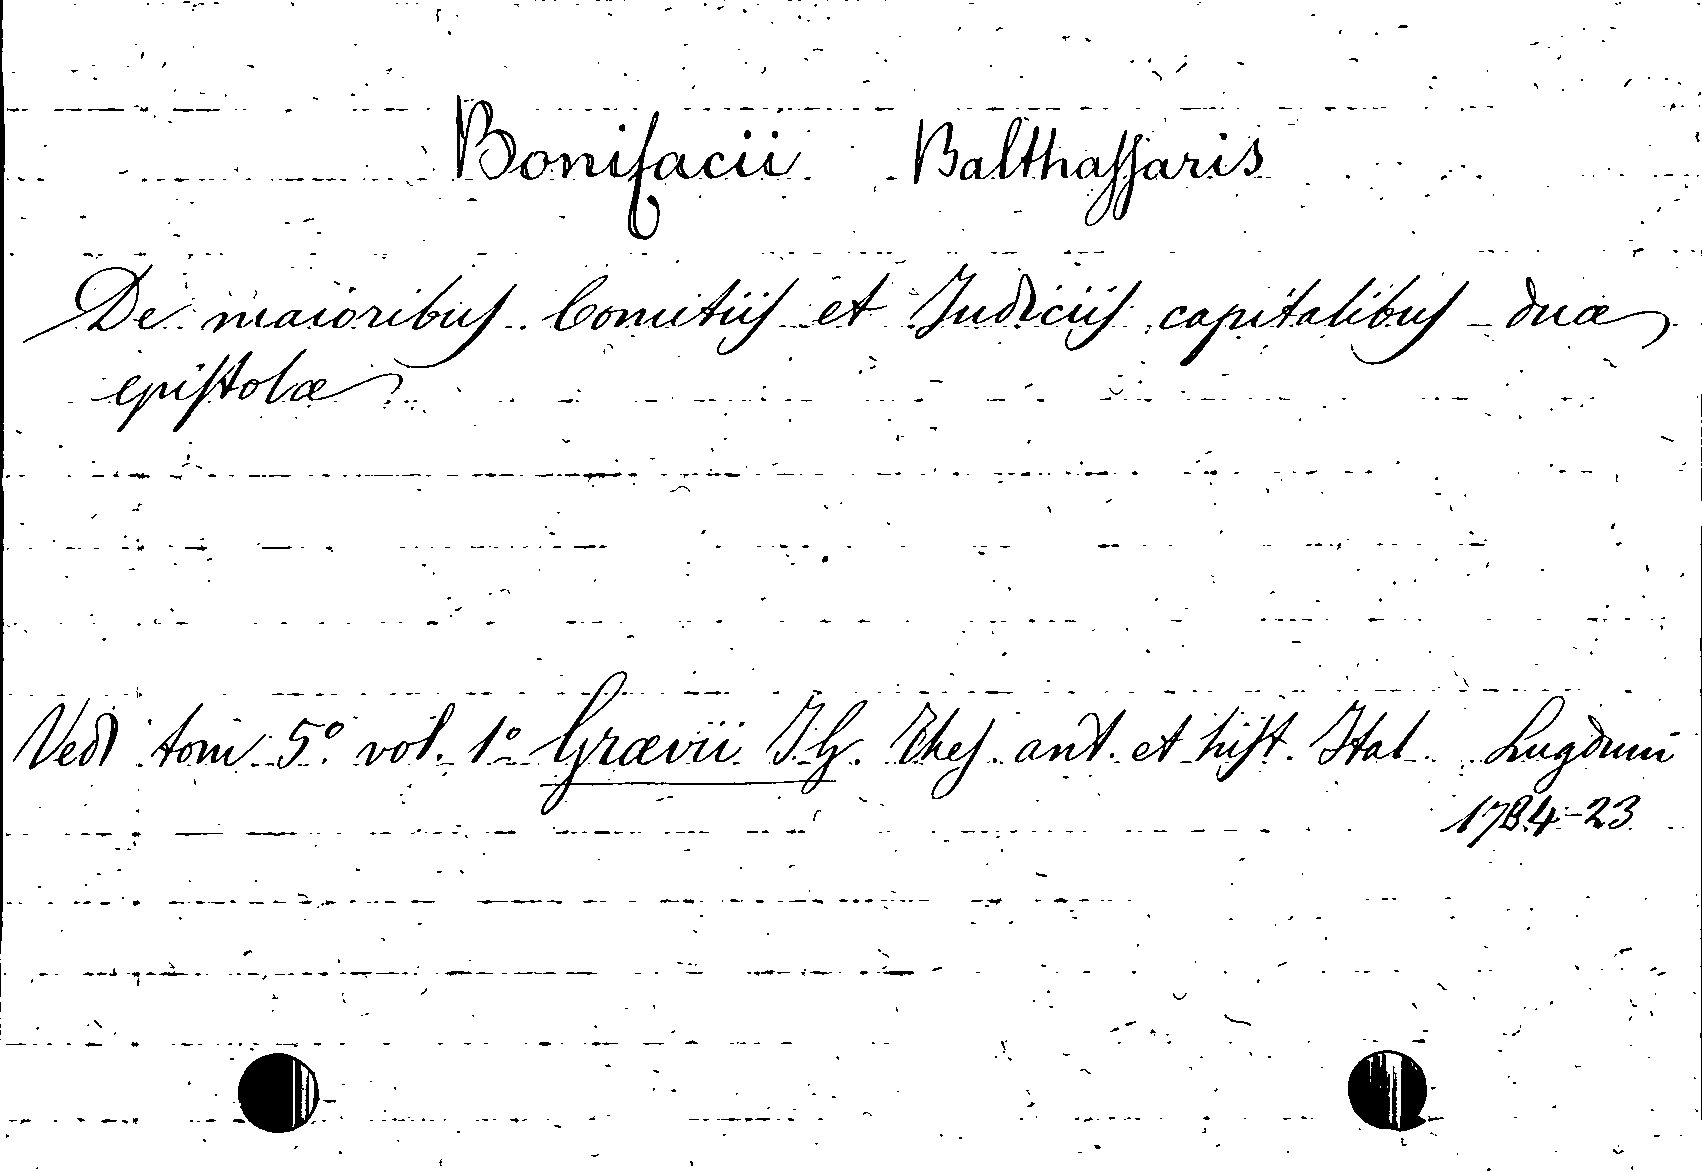 Bonifacii Balthassaris
De maioribus Comitiis et Judiciis capitalibus duæ
epistolæ
Vedi tom. 5º vol. 1º Grævii J. G. Thes. ant. et hist. Ital. Lugduni
1784-23